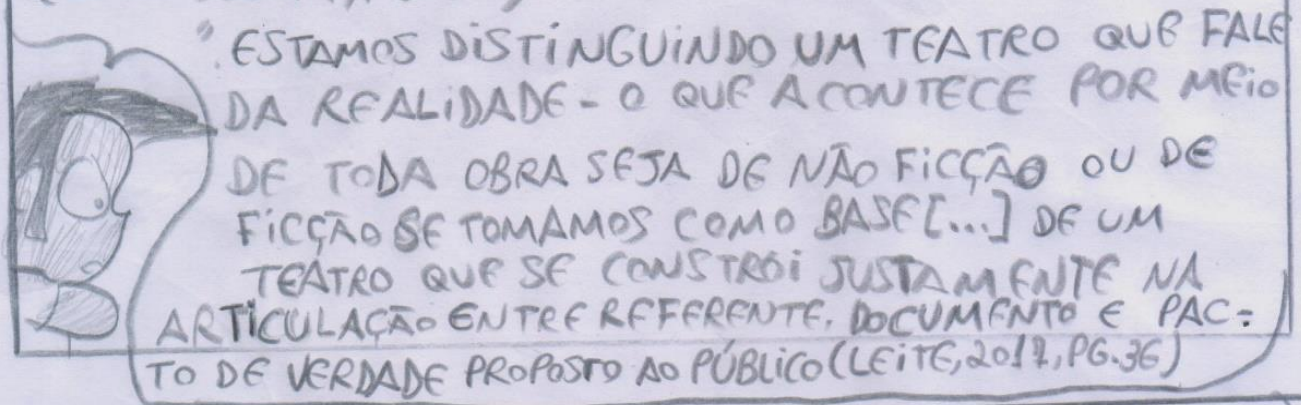 "ESTAMOS DISTINGUINDO UM TEATRO QUE FALE
DA REALIDADE - O QUE ACONTECE POR MEIO
DE TODA OBRA SEJA DE NÃO FICÇÃO OU DE
FICÇÃO SE TOMAMOS COMO BASE [...] DE UM
TEATRO QUE SE CONSTRÓI JUSTAMENTE NA
ARTICULAÇÃO ENTRE REFERENTE, DOCUMENTO E PAC-
TO DE VERDADE PROPOSTO AO PÚBLICO (LEITE, 2017, PG.36)